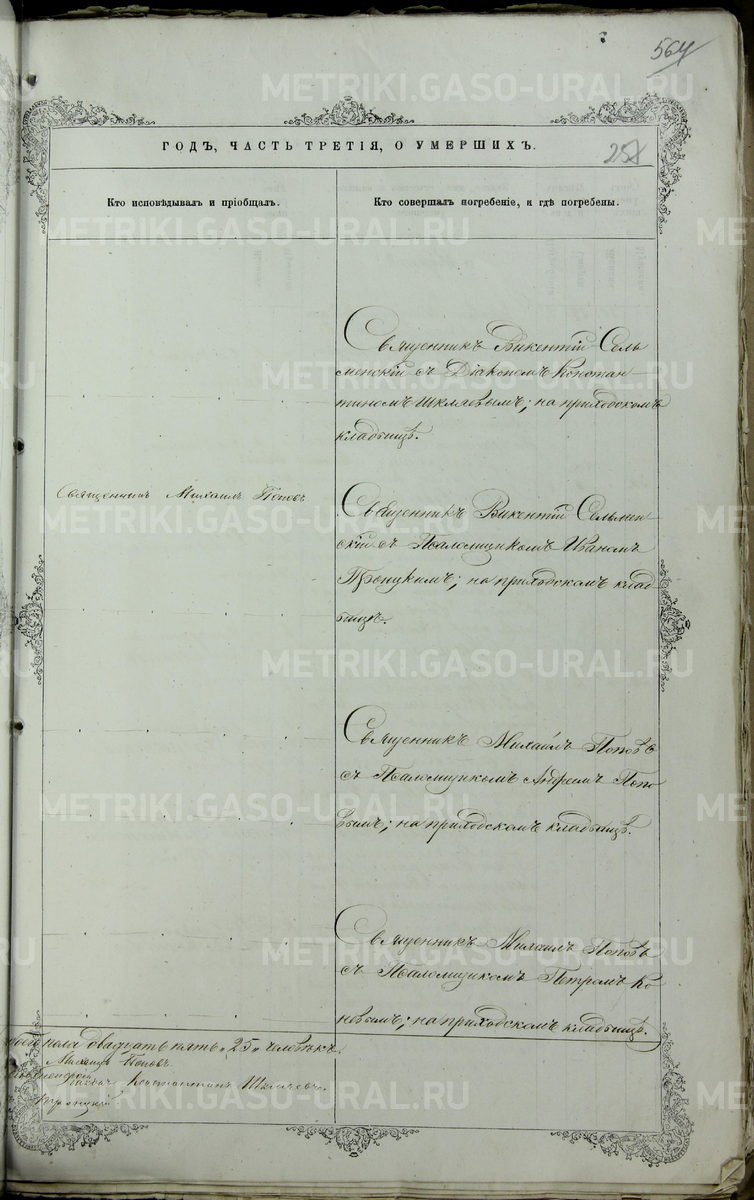 564
ГОДЪ, ЧАСТЬ ТРЕТІЯ, О УМЕРШИХЪ.
Кто исповѣдывалъ и пріобщалъ.
Кто совершалъ погребеніе, и гдѣ погребены.
Священникъ Викентій Сель
менскій съ Діакономъ Констан
тиномъ Шкляевымъ; на приходскомъ
кладбищѣ.
Священникъ Михаилъ Поповъ
Священникъ Викентій Сельмен
скій съ Псаломщикомъ Иваномъ
на приходскомъ клад
бищѣ.
Священникъ Михаилъ Поповъ
съ Псаломщикомъ Андреемъ Попо
вымъ; на приходскомъ кладбищѣ.
Священникъ Михаилъ Поповъ
съ Псаломщикомъ Петромъ Ко
невымъ; на приходскомъ кладбищѣ.
обоего пола двадцать пять „25„ человѣкъ.
Михаилъ Поповъ
Діаконъ Константинъ Шкляевъ
METRIKI.GASO-URAL.RU